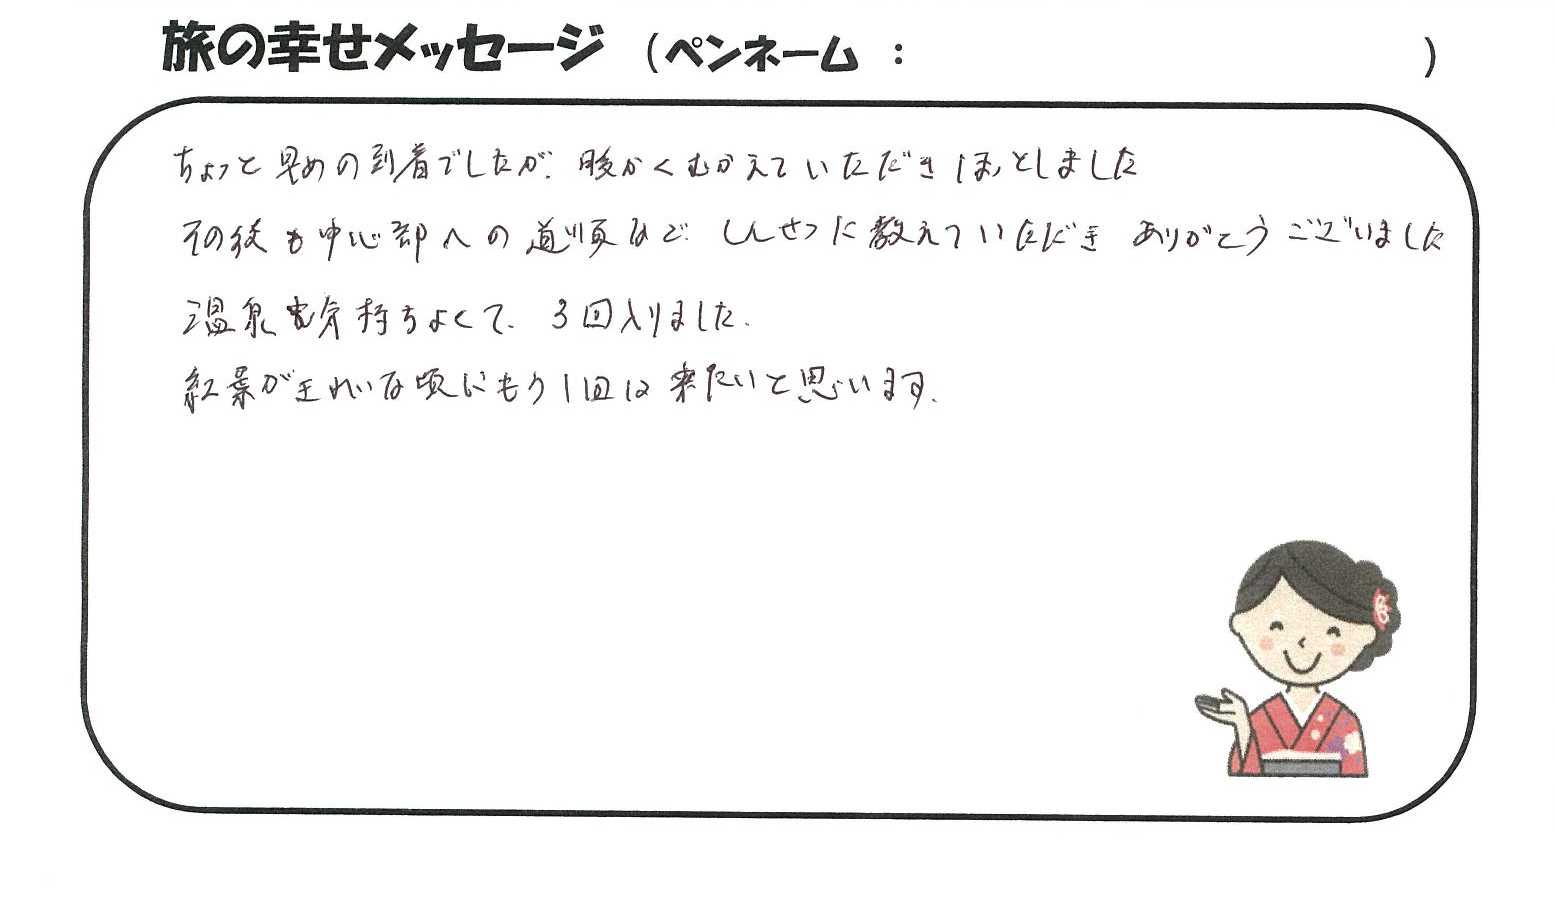 旅の幸せメッセージ （ペンネーム ： ）
ちょっと早めの到着でしたが、暖かくむかえていただきほっとしました
その後も中心部への道順など、しんせつに教えていただき ありがとうございました
温泉も気持ちよくて、3回入りました。
紅葉がきれいな頃にもう1回は来たいと思います。